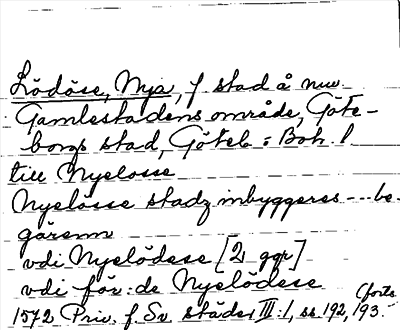 Lödöse, Nya, f. stad å nuv.
Gamlestadens område, Göte-
borgs stad, Göteb o Boh. l
till Nyelosse
Nyelösse stadz inbyggeres --- be-
gärenn
vdi Nyelödese [2 ggr]
vdi för:de Nyelödese
1572 Priv. f. Sv städer III:1, ss 192, 193. (forts